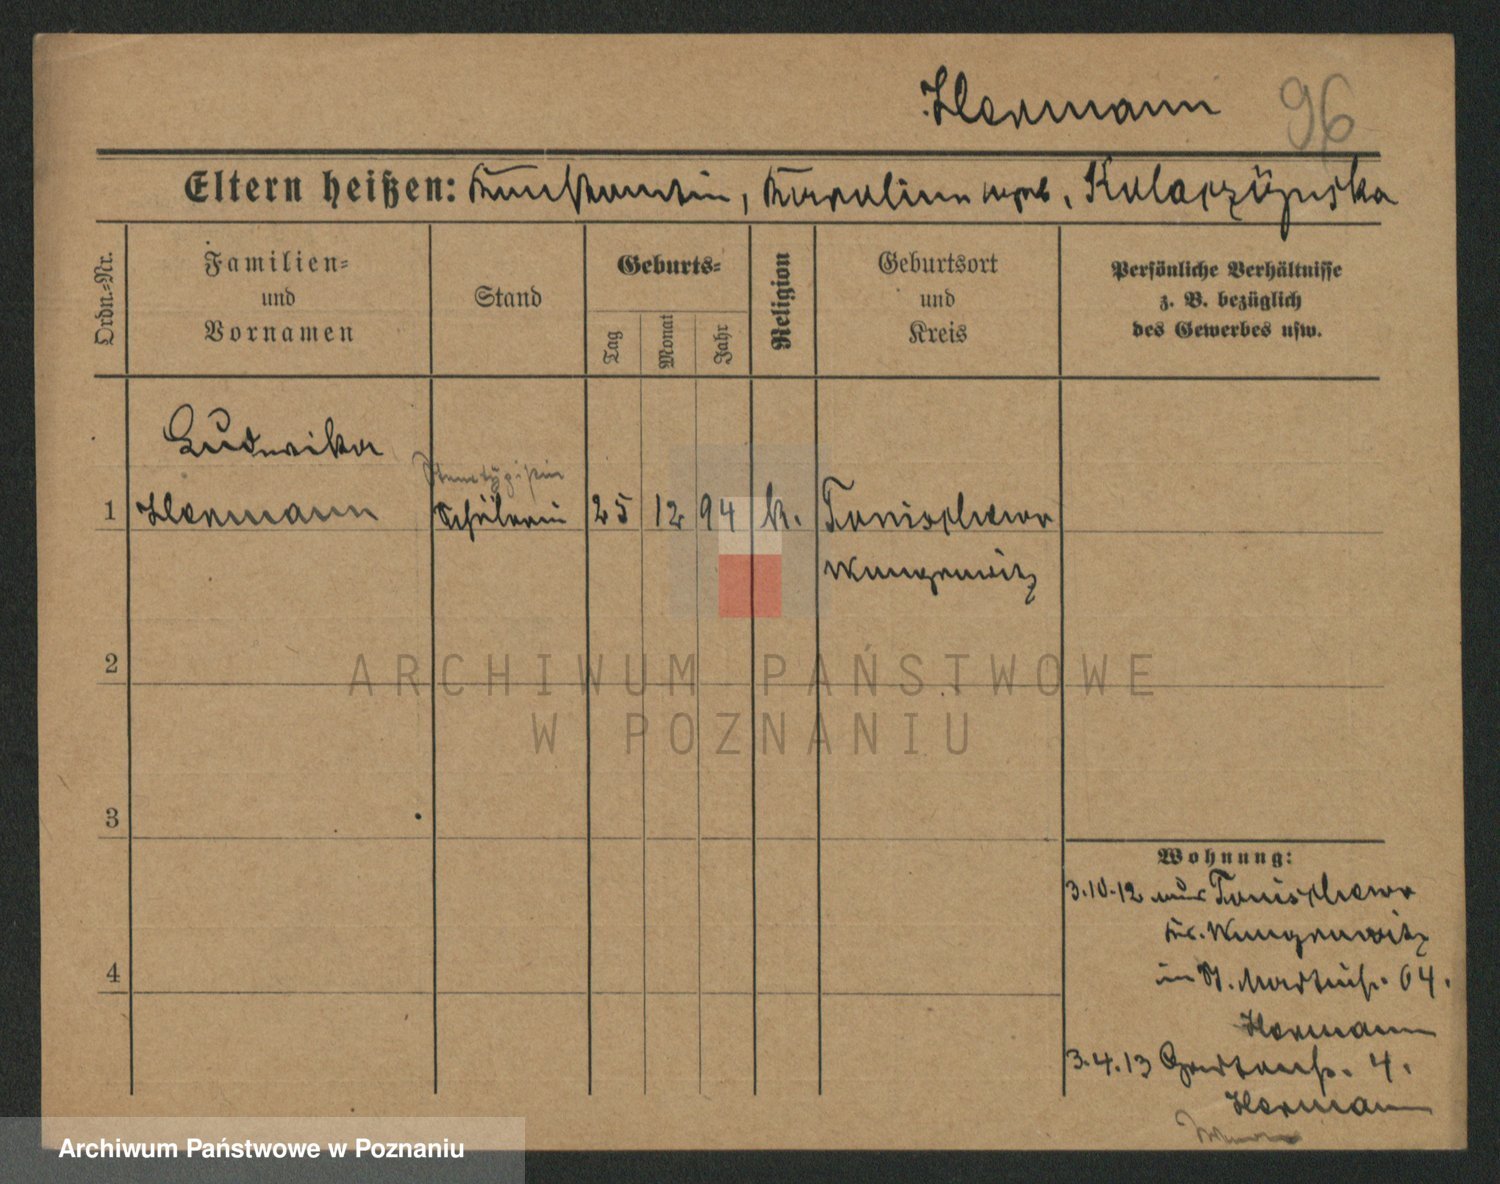 Hermann 96
Eltern heißen: Konstantin, Karoline geb. Kolaczÿnska
Ordn.-Nr.
Familien-
und
Vornamen
Stand
Geburts-
Tag
Monat
Jahr
Religion
Geburtsort
und
Kreis
Persönliche Verhältnisse
z. B. bezüglich
des Gewerbes usw.
Ludwika
Stenotÿpistin
1 Hermann Schülerin 25 12 94 k. Tonischewo
Wongrowitz
2
ARCHIWUM PAŃSTWOWE
W POZNANIU
3
Wohnung:
3.10.12 aus Tonischewo
Kr. Wongrowitz
in St. Martinstr. 64.
Hermann
4
3.4.13 Gartenstr. 4.
Hermann
Archiwum Państwowe w Poznaniu